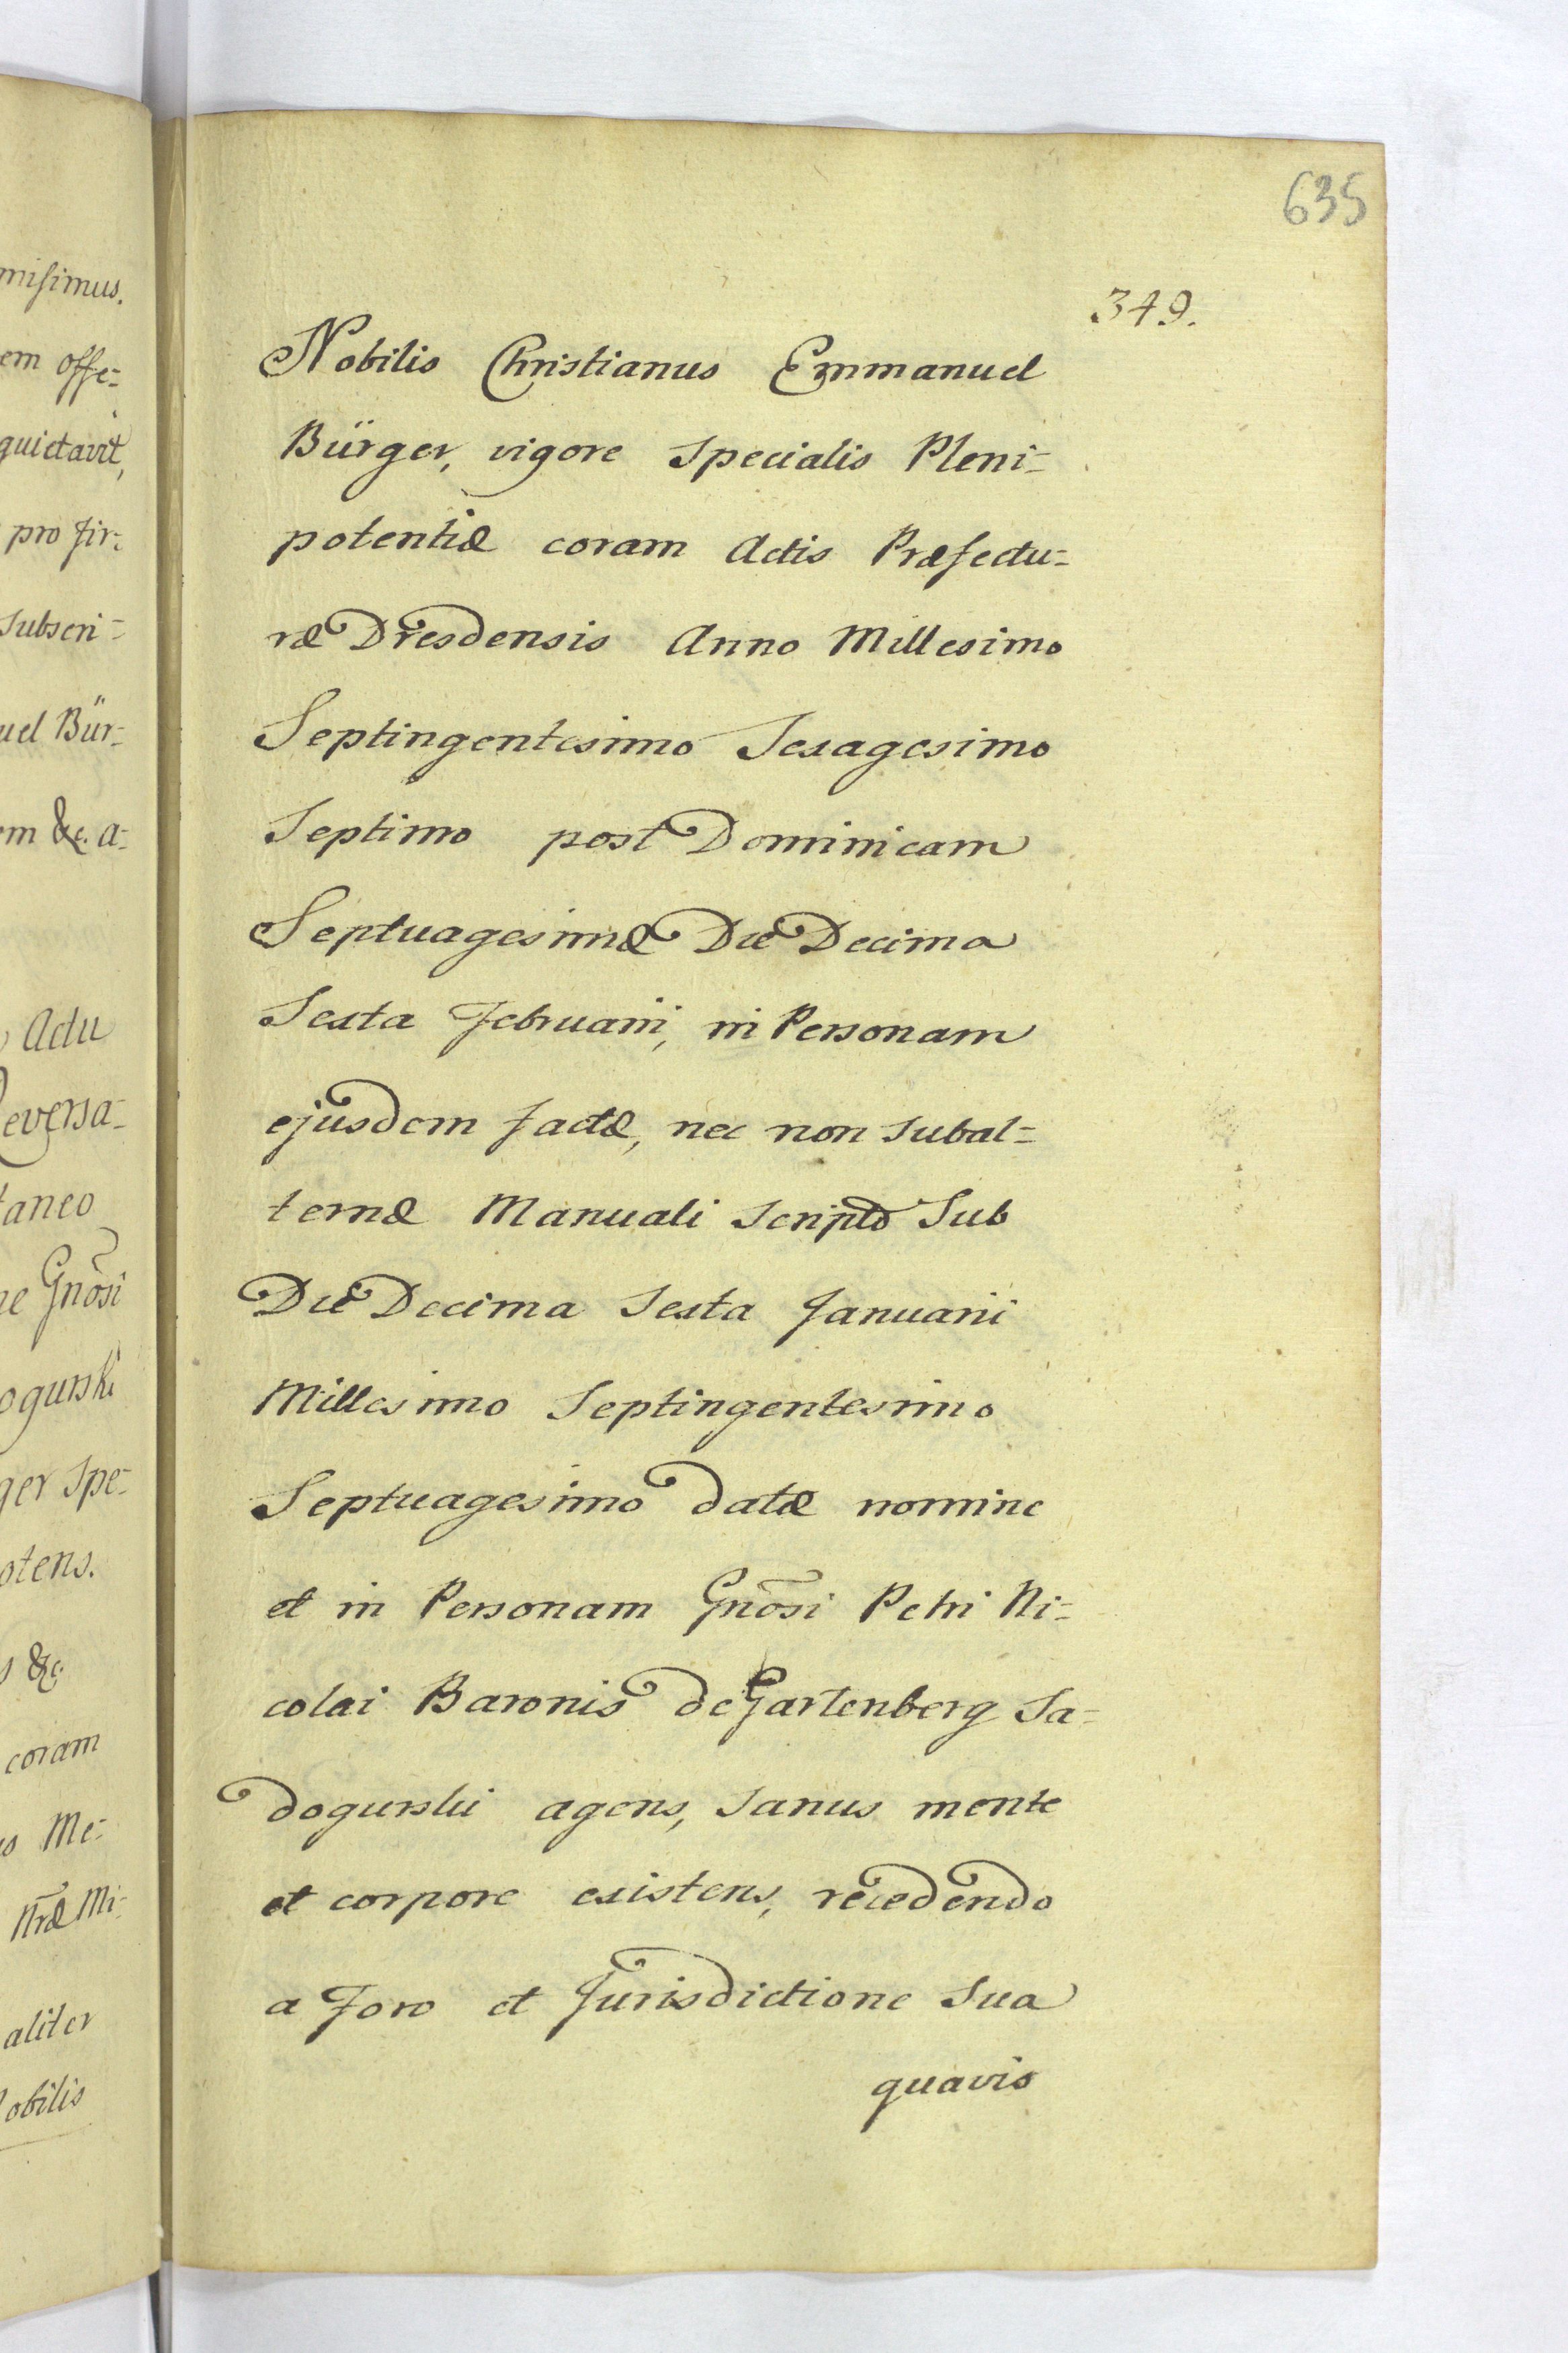 635
349.
Nobilis Christianus Emmanuel
Bürger, vigore Specialis Pleni=
potentiæ coram Actis Præfectu=
ræ Dresdensis Anno Millesimo
Septingentesimo Sexagesimo
Septimo post Dominicam
Septuagesimæ Die Decima
Sexta Februarii, in Personam
ejusdem factæ, nec non Subal=
ternæ Manuali Scripto Sub
Die Decima Sexta Januarii
Millesimo Septingentesimo
Septuagesimo datæ nomine
et in Personam Gnōsi Petri Ni=
colai Baronis de Gartenberg Sa=
dogurski agens, Sanus mente
et corpore existens, recedendo
a Foro et Jurisdictione Sua
quavis
misimus.
em offe=
quietavit,
pro fir=
Subscri=
uel Bür=
em &c. a=
Actu
Reversa=
taneo
ne Gnōsi
ogurski
ger Spe=
otens.
s &c.
coram
Me=
Nræ Mi=
aliter
Nobilis